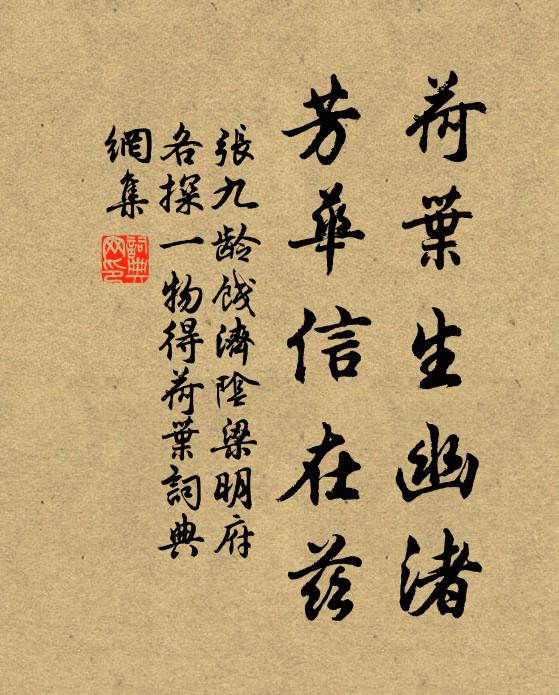 荷葉生幽渚
芳華信在茲
張九齡餞濟陰梁明府
各探一物得荷葉詞典
網集
詞典
网印